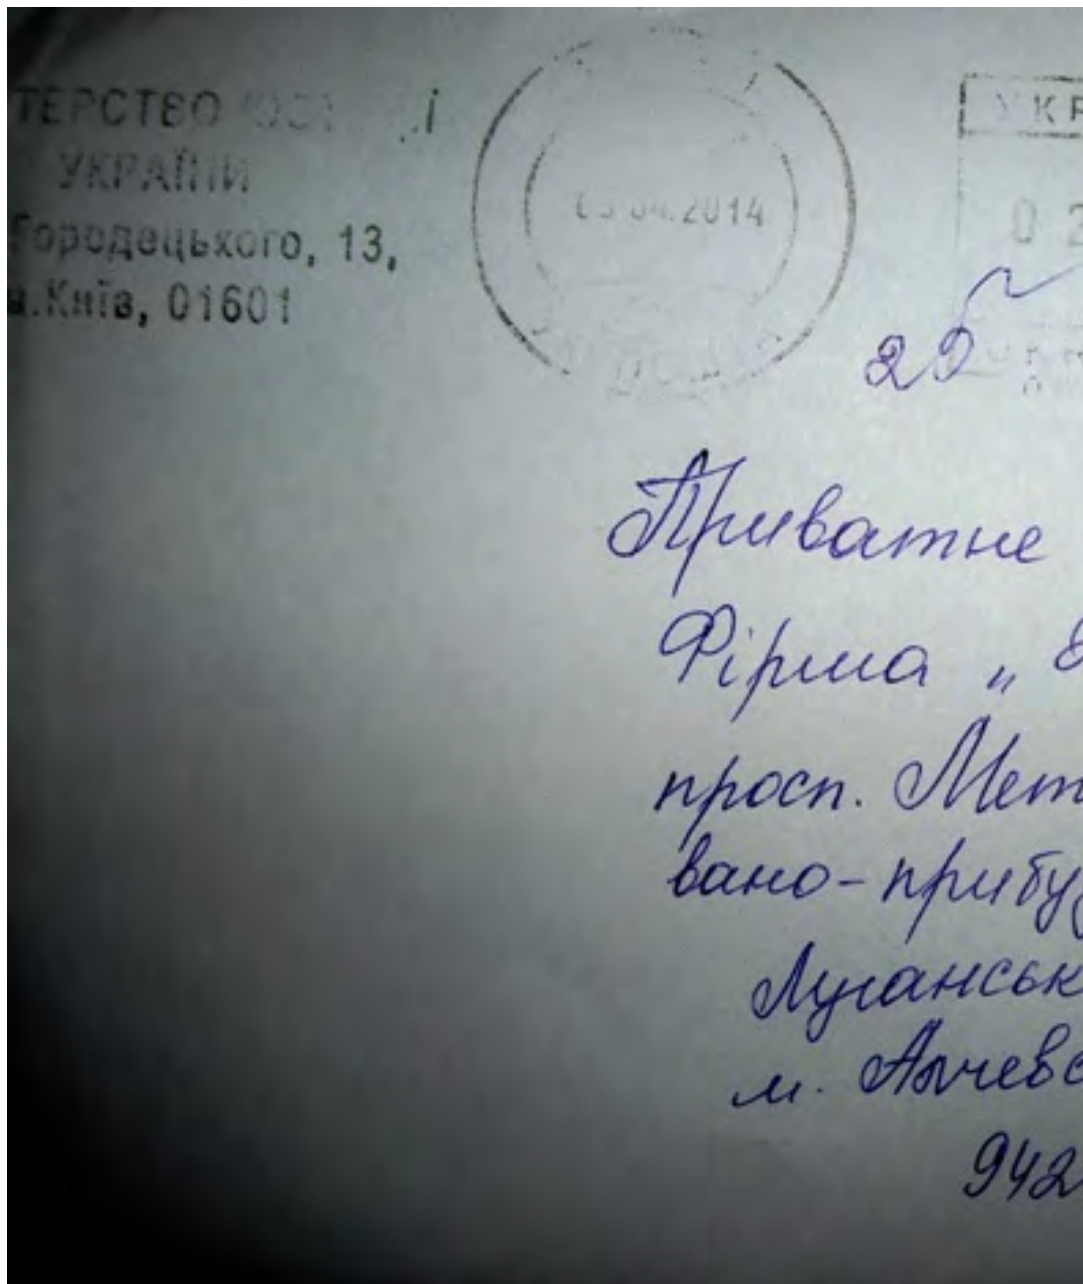 ТЕРСТВО
УКРАЇНИ
Городецького, 13,
м.Київ, 01601
04.2014
УКР
0 2
Приватне
Фірма „
просп. Мет
вано-прибу
Луганськ
м. Алчевс
942